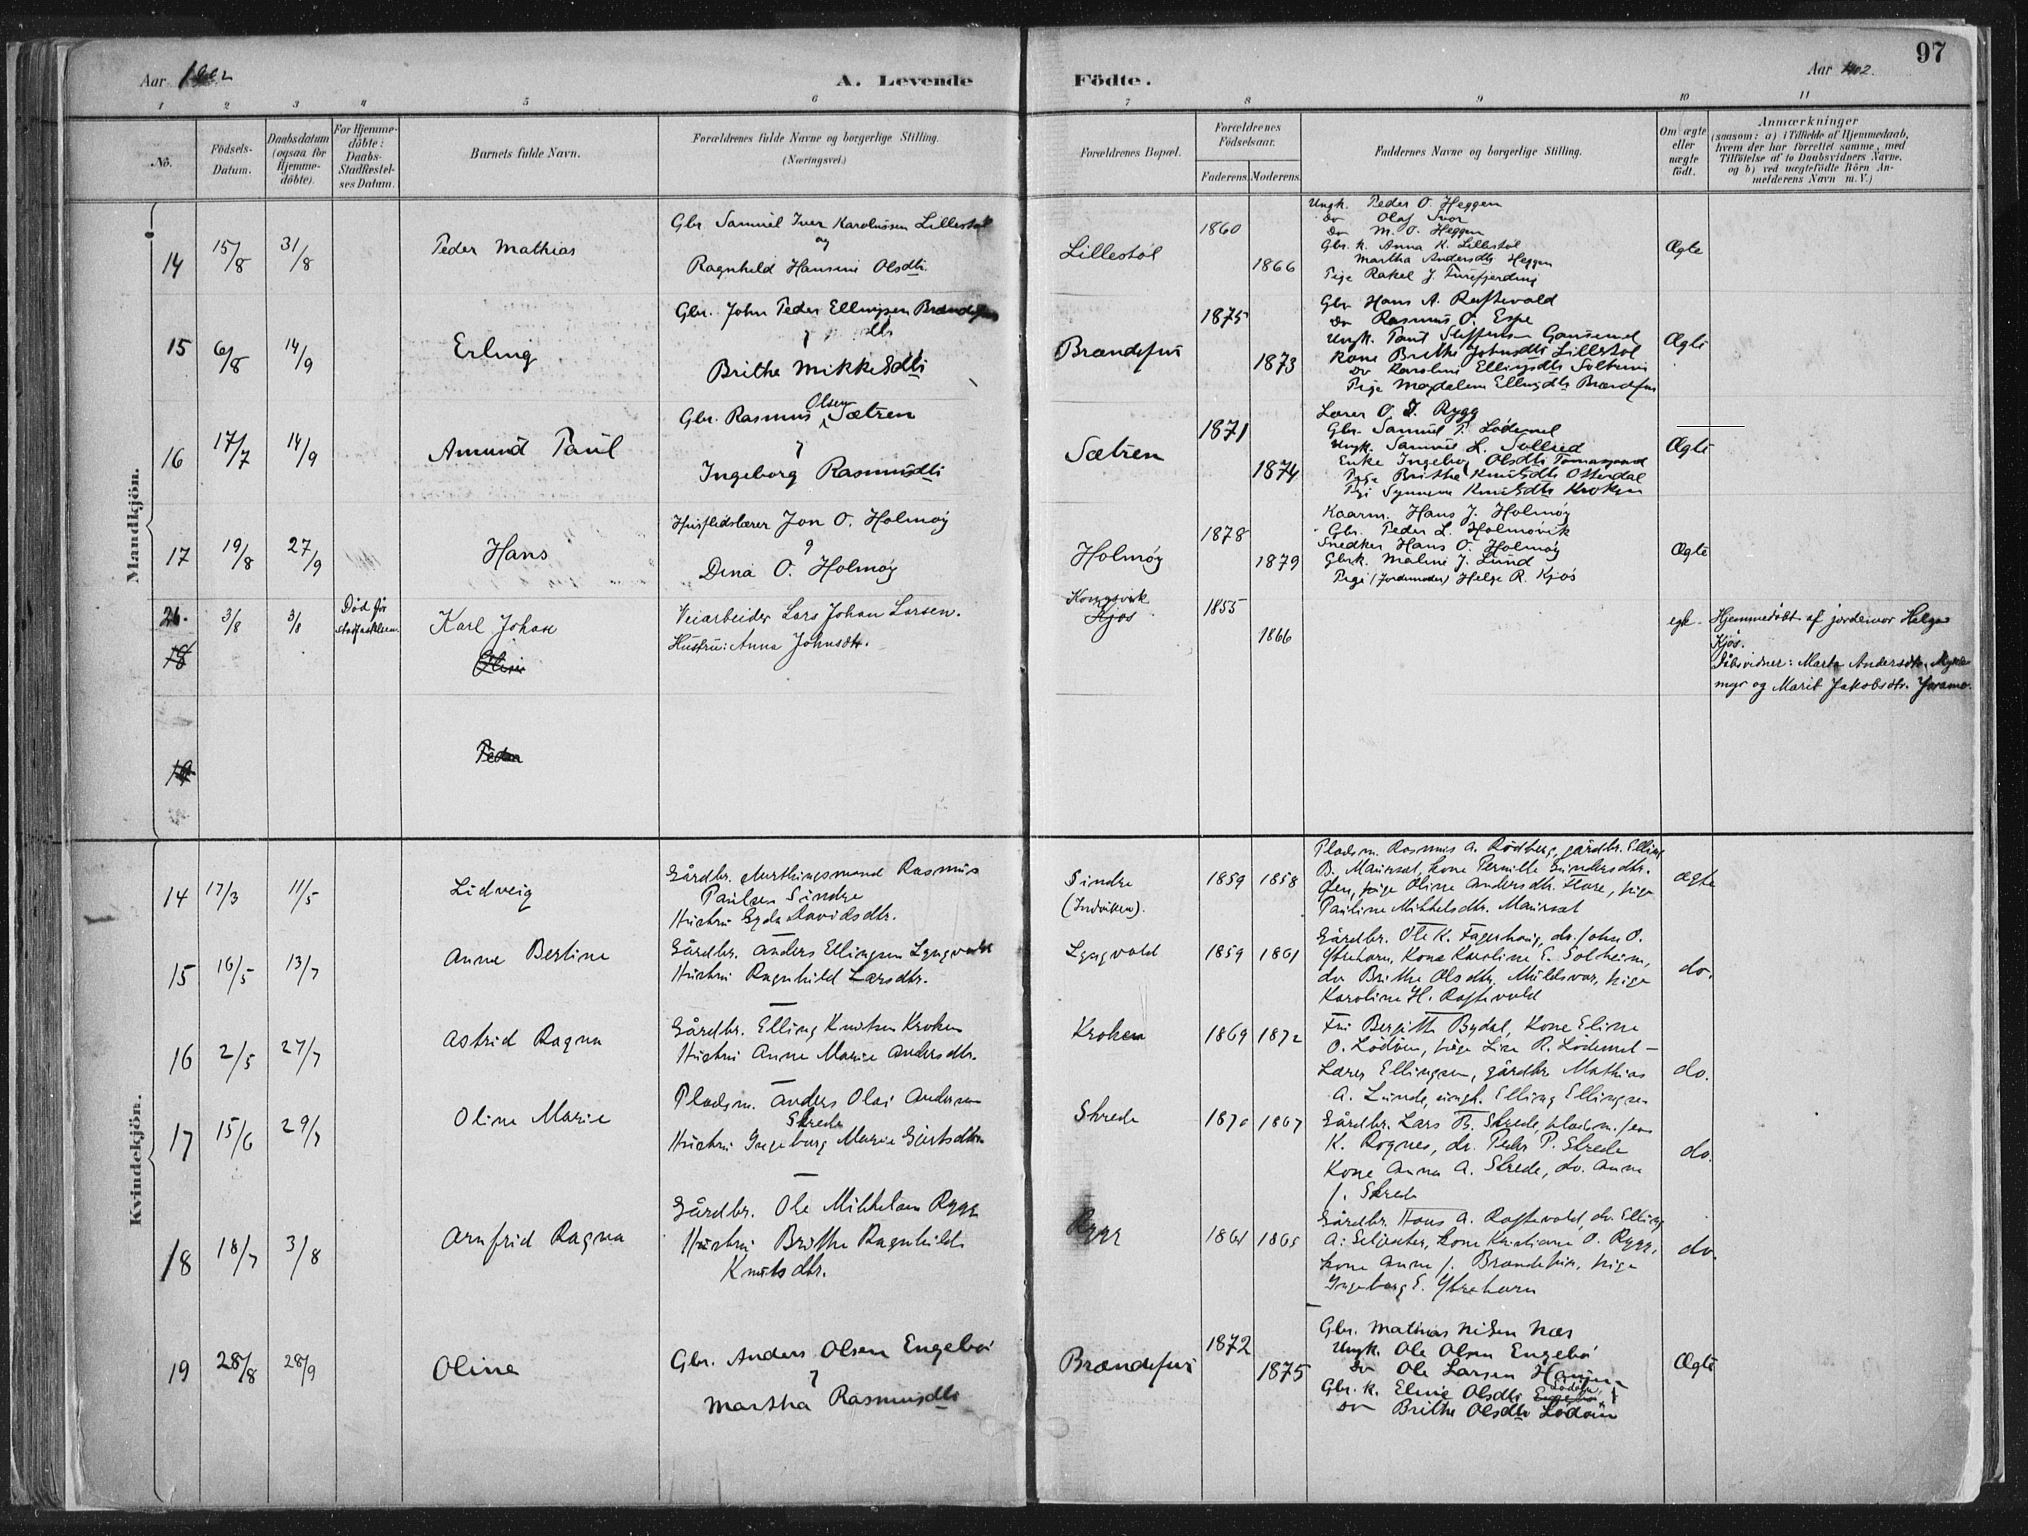 97
Aar 1902
A. Levende
Födte.
Aar 1902.
1 2 3 4 5 6 7 8 9 10 11
No.
Födsels-
Datum.
Daabsdatum
(ogsaa för
Hjemme-
döbte).
For Hjemme-
döbte:
Daabs-
Stadfæstel-
ses Datum.
Barnets fulde Navn.
Forældrenes fulde Navne og borgerlige Stilling.
(Næringsvei.)
Forældrenes Bopæl.
Forældrenes
Födselsaar.
Faderens. Moderens.
Faddernes Navne og borgerlige Stilling.
Om ægte
eller
uægte
födt.
Anmærkninger
(saasom: a) i Tilfælde af Hjemmedaab,
hvem der har forrettet samme, med
Tilföielse af to Daabsvidners Navne,
og b) ved uægtefödte Börn An-
melderens Navn m. V.)
Mandkjön.
14 15/8 31/8 Peder Mathias
Gbr Samuel Iver Karolussen Lillestøl
og
Ragnhild Hansine Olsdtr.
Lillestøl 1860 1866
Ungk. Peder O. Heggen
Do Olaf
Do M. O. Heggen
Gbr. k. Anna K. Lillestøl
Martha Andersdtr Heggen
Pige Rakel J.
Ægte
15 6/8 14/9 Erling
Gbr. John Peder Ellingsen Brandefur
Brithe Mikkelsdtr
Brændefur 1875 1873
Gbr Hans A. Raftevold
Do Rasmus O. Espe
Ungk. Paul
Kone Brithe Johnsdtr Lillestøl
Do Karoline Ellingsdtr Solheim
Pige Magdalene Ellingsdtr Brændefur
Ægte
16 17/7 14/9 Amund Paul
Gbr. Rasmus Olsen Sætren
Ingeborg Rasmusdtr
Sætren 1871 1874
Lærer O. J. Rygg
Gbr. Samuel P. Lødemel
Ungk. Samuel L.
Enke Ingeborg Olsdtr
Pige Brithe Knutsdtr Otterdal
Pige Synneva Knutsdtr Kroken
Ægte
17 19/8 27/9 Hans
Husflidslærer Jon O. Holmøy
Dina O. Holmøy
Holmøy 1878 1879
Kaarm. Hans J. Holmøy
Gbr. Peder L. Holmøvik
Snedker Hans O. Holmøy
Gbrk. Maline J. Lund
Pige (Jordemoder) Helge R. Kjøs
Ægte
26. 3/8 3/8 Død før
Karl Johan
Veiarbeider Lars Johan Larsen.
Hustru: Anna Johnsdtr.
Kongsvik
Kjøs 1855 1866
egte.
Hjemmedøbt af jordemor Helga
Kjøs.
Dåbsvidner: Marta Andersdtr.
myr og Marit Jakobsdtr.
18
19 Peder
Kvindekjön.
14 17/3 11/5 Lidveig
Gårdbr. Rasmus
Paulsen Sindre
Hustru Gyda Davidsdtr.
Sindre
(Indviken).
1859 1858
Pladsm. Rasmus A. Rødberg, gårdbr. Elling
B. Maurset, kone Pernille
pige Oline Andersdtr. Flore, pige
Pauline Mikkelsdtr. Maurset
ægte
15 16/5 13/7 Anne Bertine
Gårdbr. Anders Ellingsen Lyngvold
Hustru Ragnhild Larsdtr.
Lyngvold 1859 1861
Gårdbr. Ole K. Fagerhaug, do. John O.
Ytrehorn, Kone Karoline E. Solheim,
do Brithe Olsdtr. Muldsvor, pige
Karoline H. Raftevold
do.
16 2/5 27/7 Astrid Ragna
Gårdbr. Elling Knutsen Kroken
Hustru Anne Marie Andersdtr.
Kroken 1869 1872
Fru Bergitte Bydal, Kone Eline
O. Lødøen, pige Lise R. Lødemel
Lærer Ellingsen, gårdbr Mathias
A. Lunde, ungk. Elling Ellingsen
do.
17 15/6 29/7 Oline Marie
Pladsm. Anders Olai Andersen
Skrede
Hustru Ingeborg Marie Gjertsdtr
Skrede 1870 1867
Gårdbr. Lars B. Skrede, pladsm. Jens
K. Rognes, do. Peder P. Skrede
Kone Anna A. Skrede, do. Anne
J. Skrede
do.
18 18/7 3/8 Arnfrid Ragna
Gårdbr. Ole Mikkelsen Rygg
Hustru Brithe Ragnhild
Knutsdtr.
Rygg 1861 1865
Gårdbr. Hans A. Raftevold, do. Elling
A. Seljeseter, kone Kristiane O. Rygg,
kone Anne J. Brandefur, pige
Ingeborg E. Ytrehorn
do.
19 28/8 28/9 Oline
Gbr. Anders Olsen Engebø
Martha Rasmusdtr
Brændefur 1872 1875
Gbr. Mathias Nilsen Næs
Ungk. Ole Olsen Engebø
Do Ole Larsen
Gbr. k. Eline Olsdtr Lødøen
Do Brithe Olsdtr Lødøen
Ægte